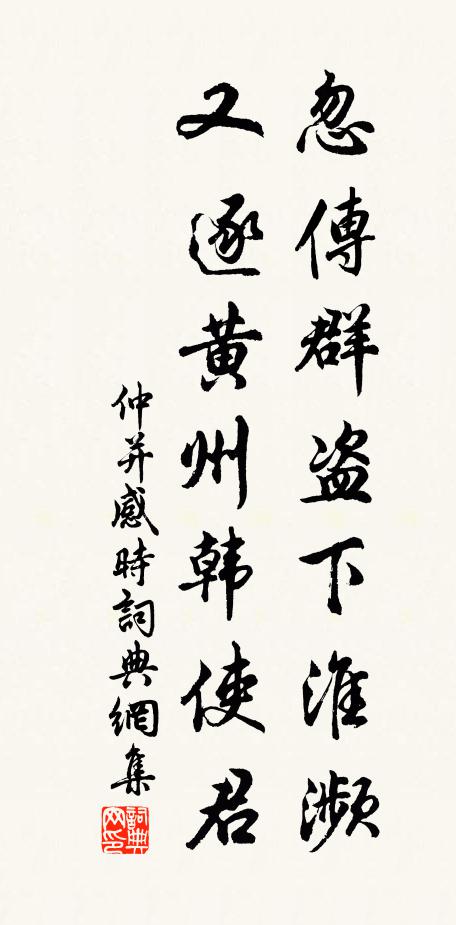 忽傳群盗下淮瀕
又逐黄州韩使君
仲并感時詞典網集
詞典網印